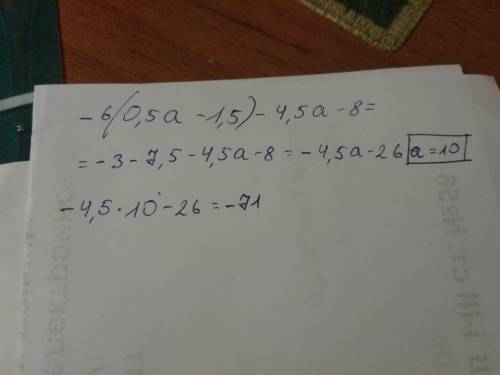 -6(0,5a -1,5)-4,5a-8=
=-3-7,5-4,5a-8=-4,5a-26 a=10
-4,5·10-26=-71